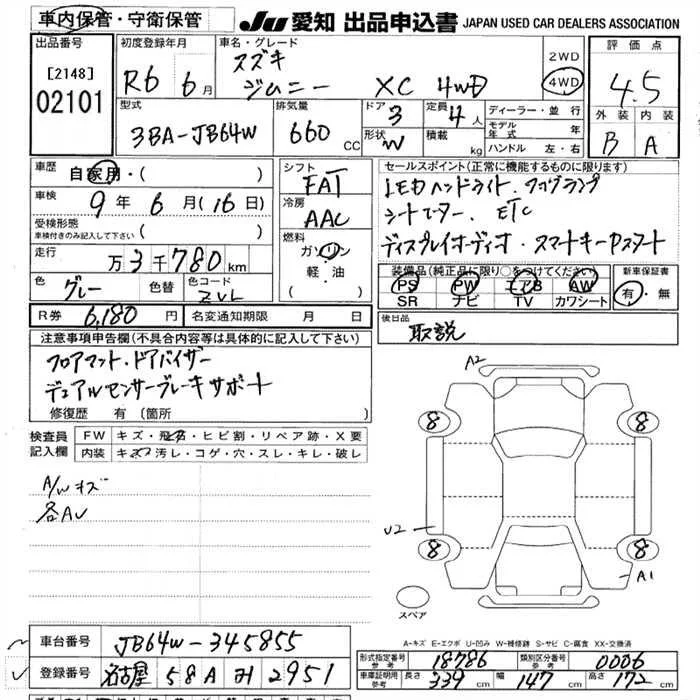 車内保管・守衛保管
JU 愛知 出品申込書 JAPAN USED CAR DEALERS ASSOCIATION
出品番号
[2148]
02101
初度登録年月
R6 6月
車名・グレード
スズキ
ジムニー XC 4WD
2WD
4WD
評価点
4.5
外装 内装
B A
型式
3BA-JB64W
排気量
660 CC
ドア
3
形状
W
定員
4人
積載
kg
ディーラー・並行
モデル年式 年
ハンドル 左・右
車歴
自家用・( )
車検
9年 6月(16日)
受検形態
車検付きのみ記入して下さい ( )
走行
万3千780km
色
グレー
色替
色コード
ZVL
シフト
FAT
冷房
AAC
燃料
ガソリン
軽・油
( )
セールスポイント(正常に機能するものに限ります)
LEDヘッドライト・フォグランプ
シートヒーター・ETC
ディスプレイオーディオ・スマートキーPスタート
装備品(純正品に限り○をつけてください)
PS PW エアB AW
SR ナビ TV カワシート
新車保証書
有・無
R券 6,180円
名変通知期限 月 日
後日品
取説
注意事項申告欄(不具合内容等は具体的に記入して下さい)
フロアマット・ドアバイザー
デュアルセンサーブレーキサポート
修復歴 有(箇所 )
検査員
記入欄
FW キズ・飛石・ヒビ割・リペア跡・X要
内装 キズ・汚レ・コゲ・穴・スレ・キレ・破レ
A/Wキズ
各AU
A2
8
8
U2
8
8
A1
スペア
A-キズ E-エクボ U-凹み W-補修跡 S-サビ C-腐食 XX-交換済
車台番号 JB64W-345855
登録番号 名古屋 58A 2951
形式指定番号
参考
18786
類別区分番号
参考
0006
車庫証明用
参考
長さ 339cm
幅 147cm
高さ 172cm